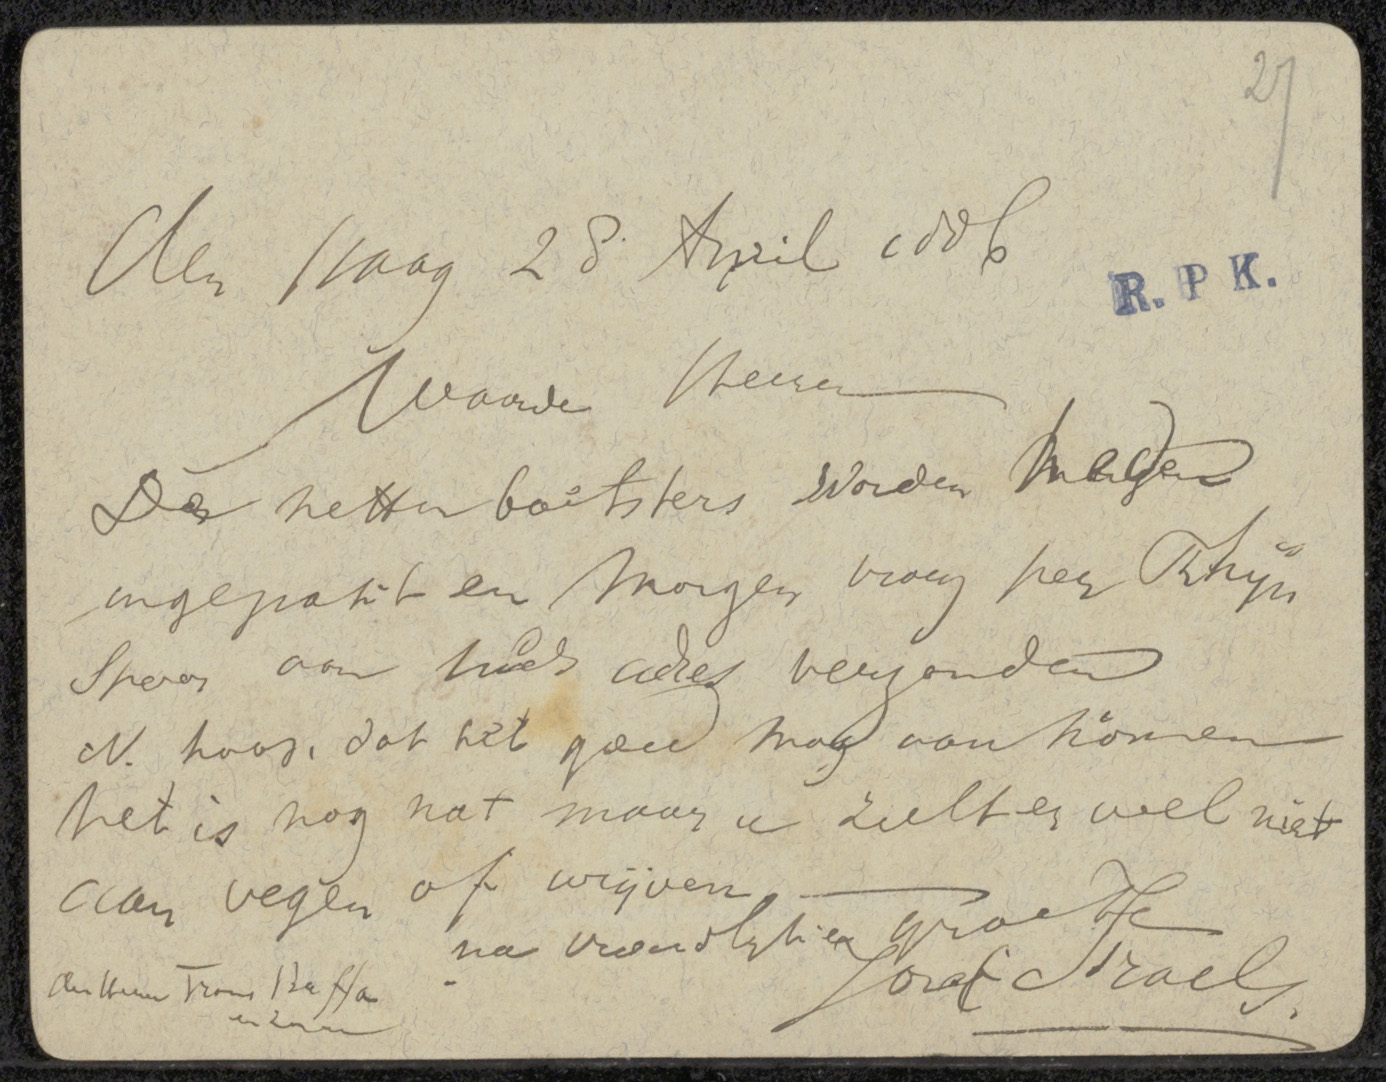 27
den Haag 28 April 1886
R. P K.
Waarde Heeren
De nettenboetsters worden
ingepakt en morgen vroeg per Rhijn
Spoor aan adres verzonden
N. hoop, dat het goed mag aankomen
het is nog nat maar u zult er wel niet
aan vegen of wrijven
na vriendlyken groette
Jozef Israels.
den Heeren Frans Buffa
en Zonen